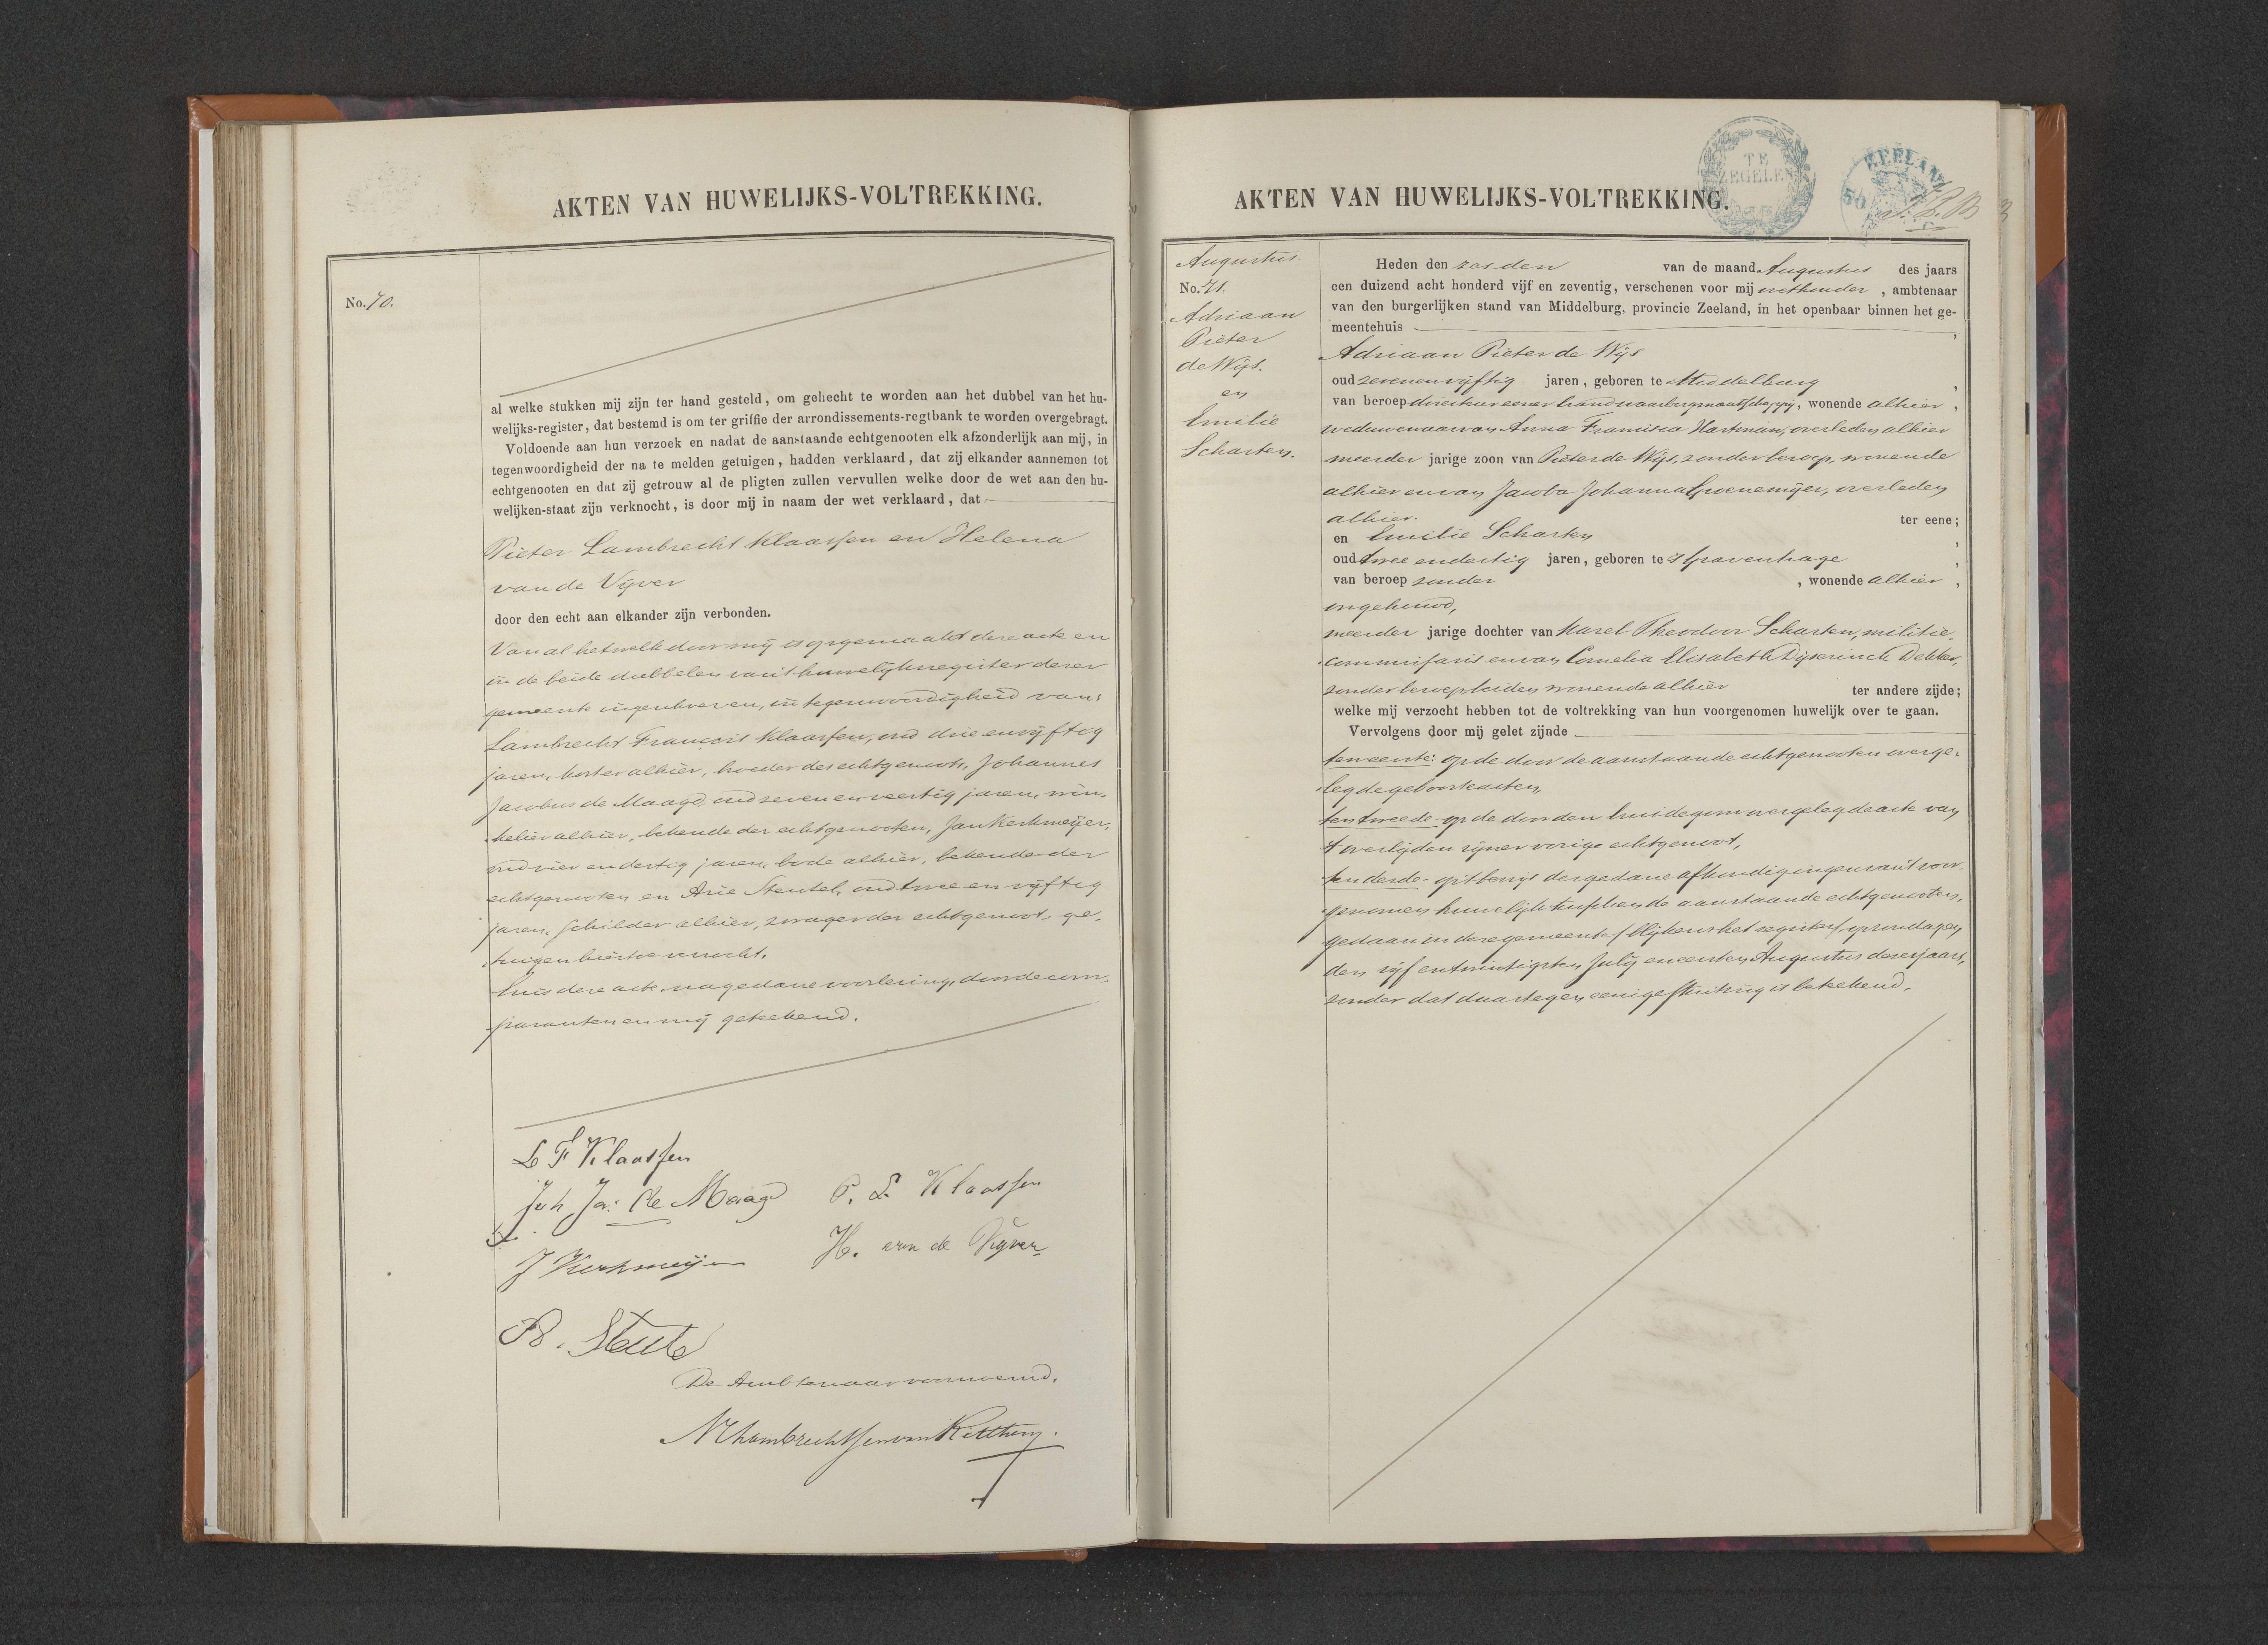 AKTEN VAN HUWELIJKS-VOLTREKKING.
No. 70.
al welke stukken mij zijn ter hand gesteld, om gehecht te worden aan het dubbel van het hu-
welijks-register, dat bestemd is om ter griffie der arrondissements-regtbank te worden overgebragt.
Voldoende aan hun verzoek en nadat de aanstaande echtgenooten elk afzonderlijk aan mij, in
tegenwoordigheid der na te melden getuigen, hadden verklaard, dat zij elkander aannemen tot
echtgenooten en dat zij getrouw al de pligten zullen vervullen welke door de wet aan den hu-
welijken-staat zijn verknocht, is door mij in naam der wet verklaard, dat
Pieter Lambrecht Klaassen en Helena
van de Vijver
door den echt aan elkander zijn verbonden.
Van al hetwelk door mij is opgemaakt deze acte en
in de beide dubbelen van 't huwelijksregister dezer
gemeente ingeschreven, in tegenwoordigheid van:
Lambrecht François Klaassen, oud drie en vijftig
jaren, koster alhier, broeder des echtgenoots, Johannes
Jacobus de Maagd, oud zeven en veertig jaren, win-
kelier alhier, bekende der echtgenooten, Jan Kerkmeijer,
oud vier en dertig jaren, bode alhier, bekende der
echtgenooten en Arie Steutel, oud twee en vijftig
jaren, schilder alhier, zwager der echtgenoot, ge-
tuigen hiertoe verzocht.
En is deze acte, na gedane voorlezing, door de com-
paranten en mij geteekend.
L F Klaassen
Joh Ja: de Maagd P. L Klaassen
J Kerkmeijer H. van de Vijver
A. Steutel
De Ambtenaar voornoemd,
NCLambrechtsen van Ritthem.
AKTEN VAN HUWELIJKS-VOLTREKKING.
TE
ZEGELEN
ZEELAND
50
Augustus.
No. 71.
Adriaan
Pieter
de Wijs.
en
Emilie
Scharten.
Heden den zesden van de maand Augustus des jaars
een duizend acht honderd vijf en zeventig, verschenen voor mij wethouder, ambtenaar
van den burgerlijken stand van Middelburg, provincie Zeeland, in het openbaar binnen het ge-
meentehuis ,
Adriaan Pieter de Wijs
oud zeven en vijftig jaren, geboren te Middelburg ,
van beroep directeur eener brandwaarborgmaatschappij, wonende alhier ,
weduwenaar van Anna Francisca Hartman, overleden alhier
meerder jarige zoon van Pieter de Wijs, zonder beroep, wonende
alhier en van Jacoba Johanna Groenemeijer, overleden
alhier. ter eene;
en Emilie Scharten ,
oud twee en dertig jaren, geboren te 's Gravenhage ,
van beroep zonder , wonende alhier ,
ongehuwd,
meerder jarige dochter van Karel Theodoor Scharten, militie-
commissaris en van Cornelia Elisabeth Dijserinck Dekker,
zonder beroep, beiden wonende alhier ter andere zijde;
welke mij verzocht hebben tot de voltrekking van hun voorgenomen huwelijk over te gaan.
Vervolgens door mij gelet zijnde
ten eerste: op de door de aanstaande echtgenooten overge-
legde geboorteacten,
ten tweede op de door den bruidegom overgelegde acte van
't overlijden zijner vorige echtgenoot,
ten derde - op 't bewijs der gedane afkondigingen van 't voor-
genomen huwelijk tusschen de aanstaande echtgenooten,
gedaan in deze gemeente (blijkens het register) op zondagen
den vijf en twintigsten July en eersten Augustus dezes jaars,
zonder dat daartegen eenige stuiting is beteekend.